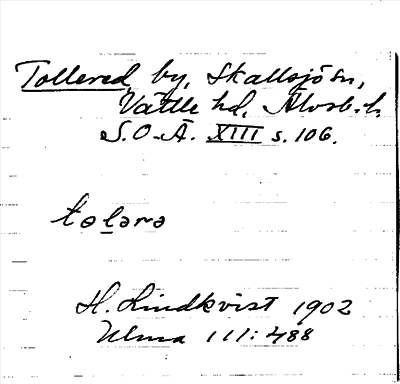 Tollered, by, Skallsjö sn,
Vättle hd, Älvsb. l.
S.O.Ä. XIII s. 106.
tolərə
H. Lindkvist 1902
Ulma 111:488